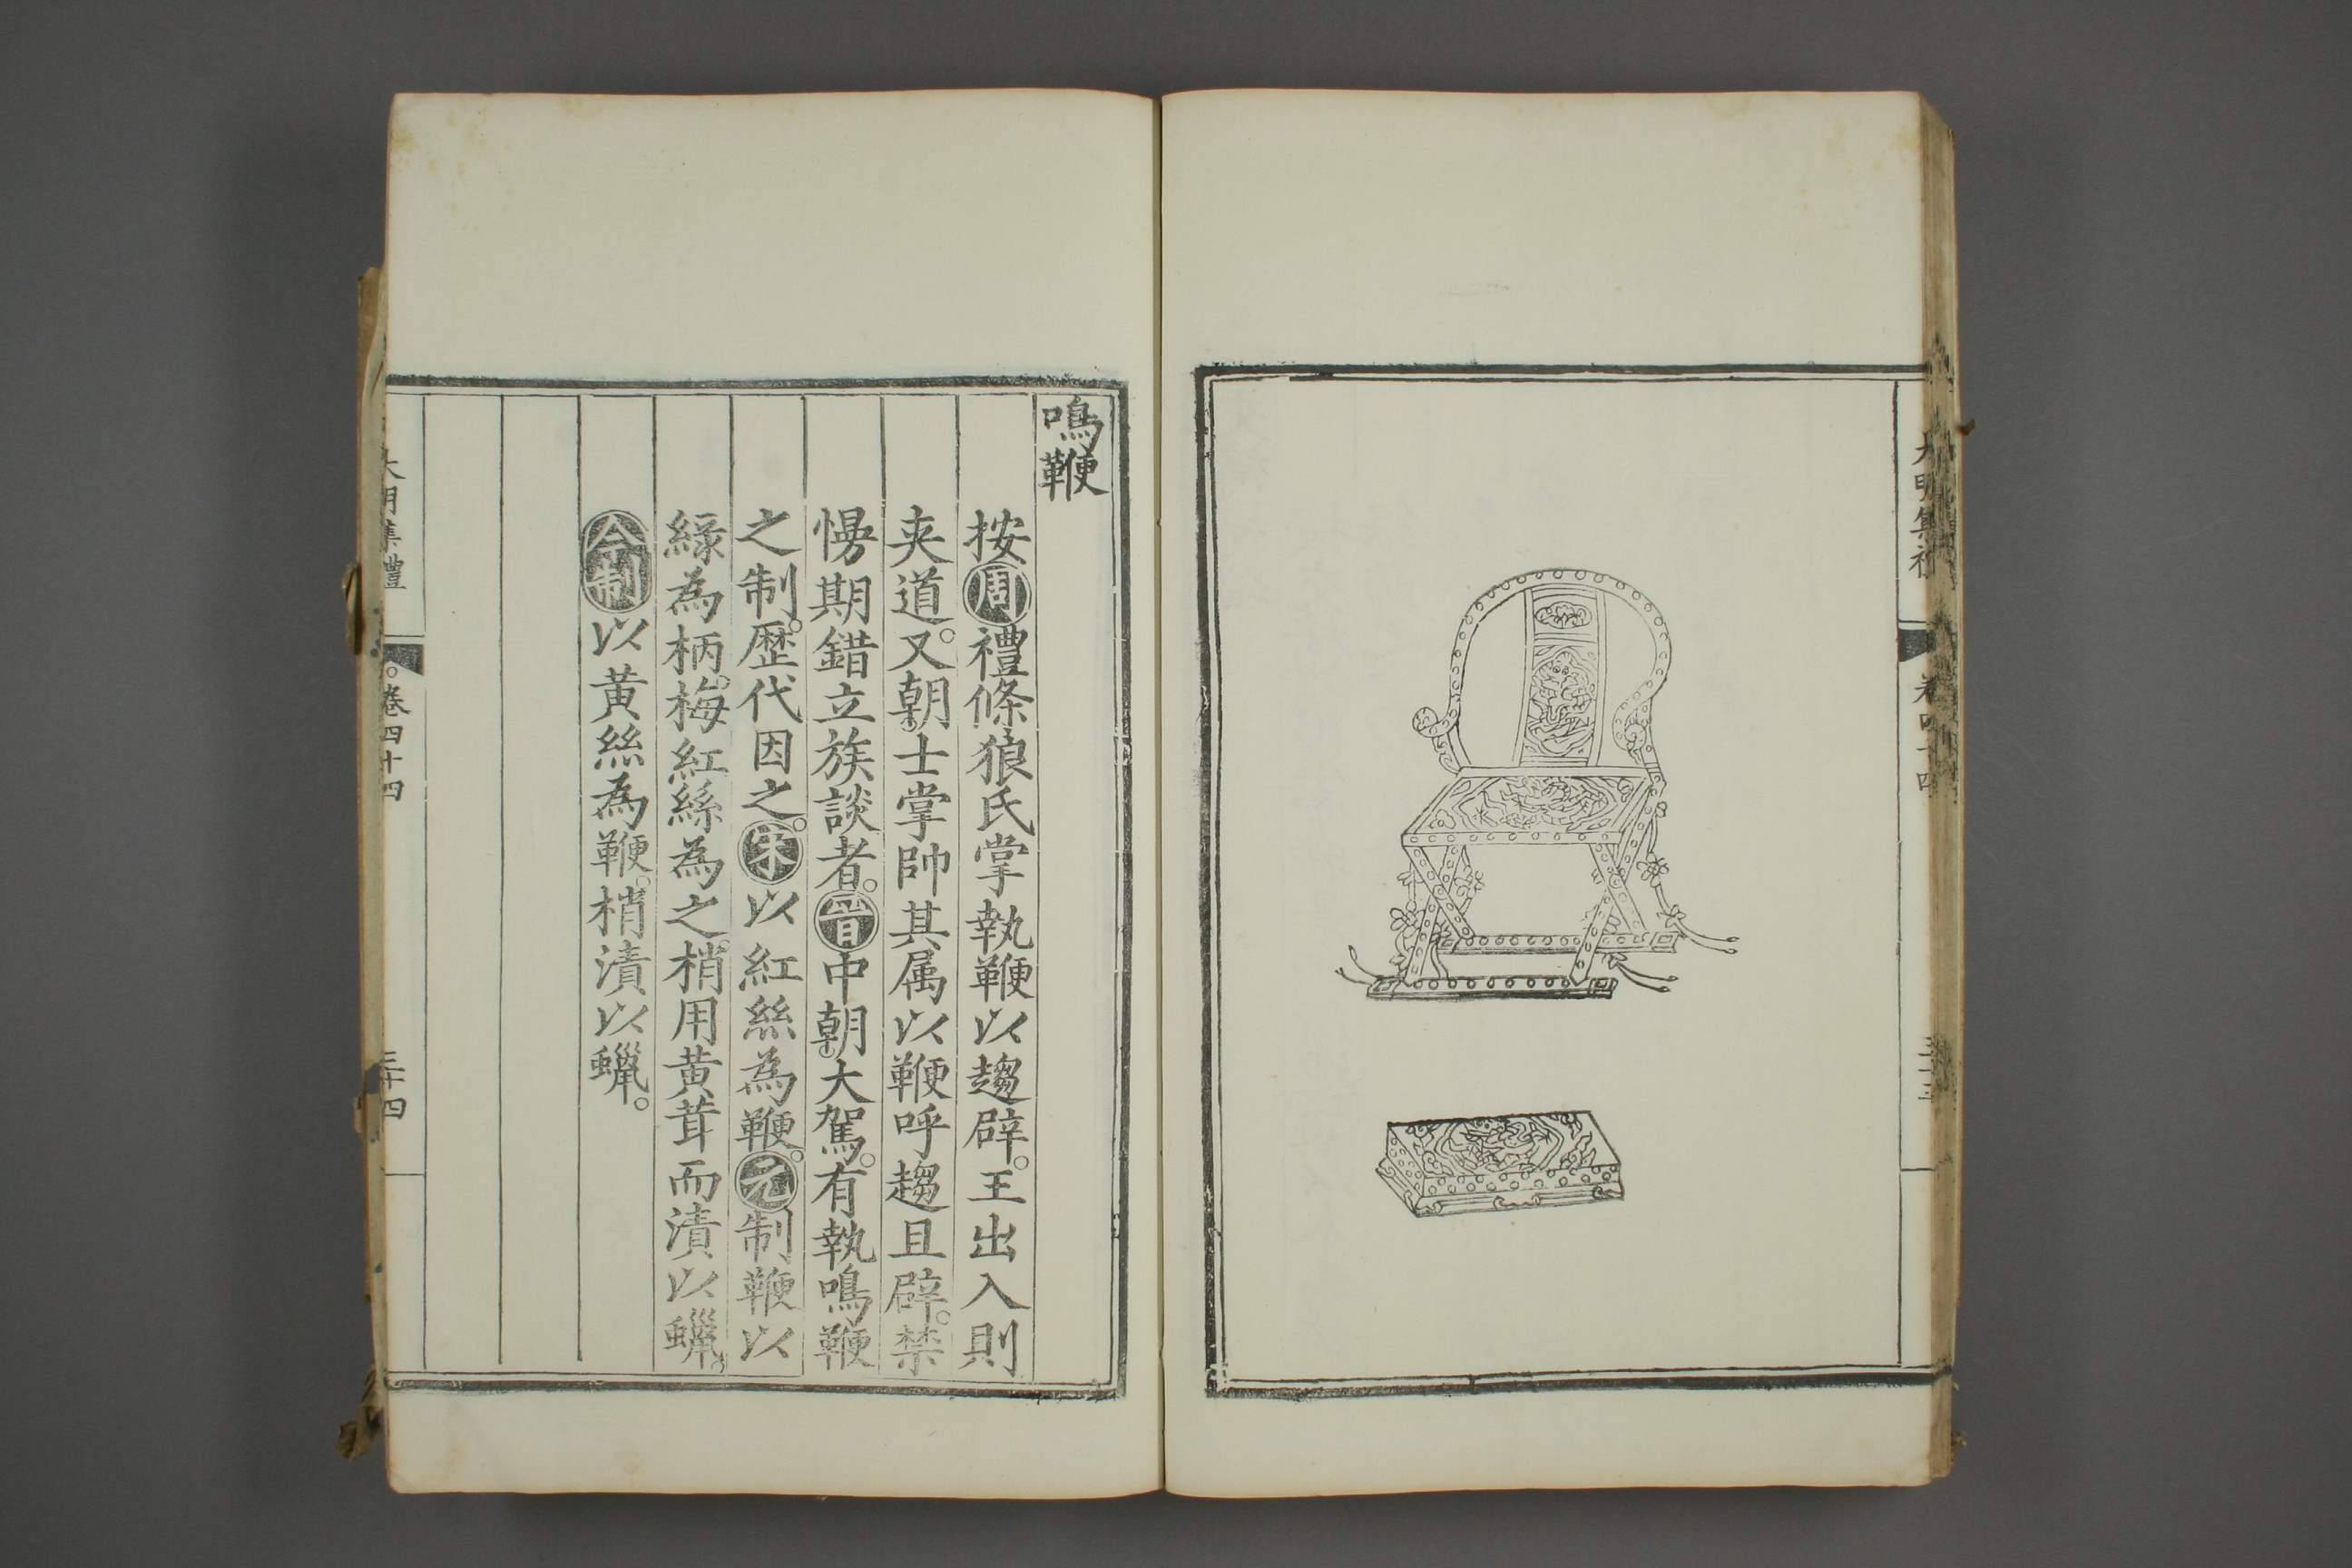 大明集禮
卷四十四
鳴鞭
按周禮條狼氏掌執鞭以趨辟。王出入則
夾道。又朝士掌帥其属以鞭呼趨且辟。禁
慢期錯立族談者。晉中朝大駕。有執鳴鞭
之制。歷代因之。宋以紅絲為鞭。元制鞭以
緑為柄。梅紅絲為之。梢用黄茸而漬以蠟。
今制以黄絲為鞭。梢漬以蠟。
大明集禮
卷四十四
三十四